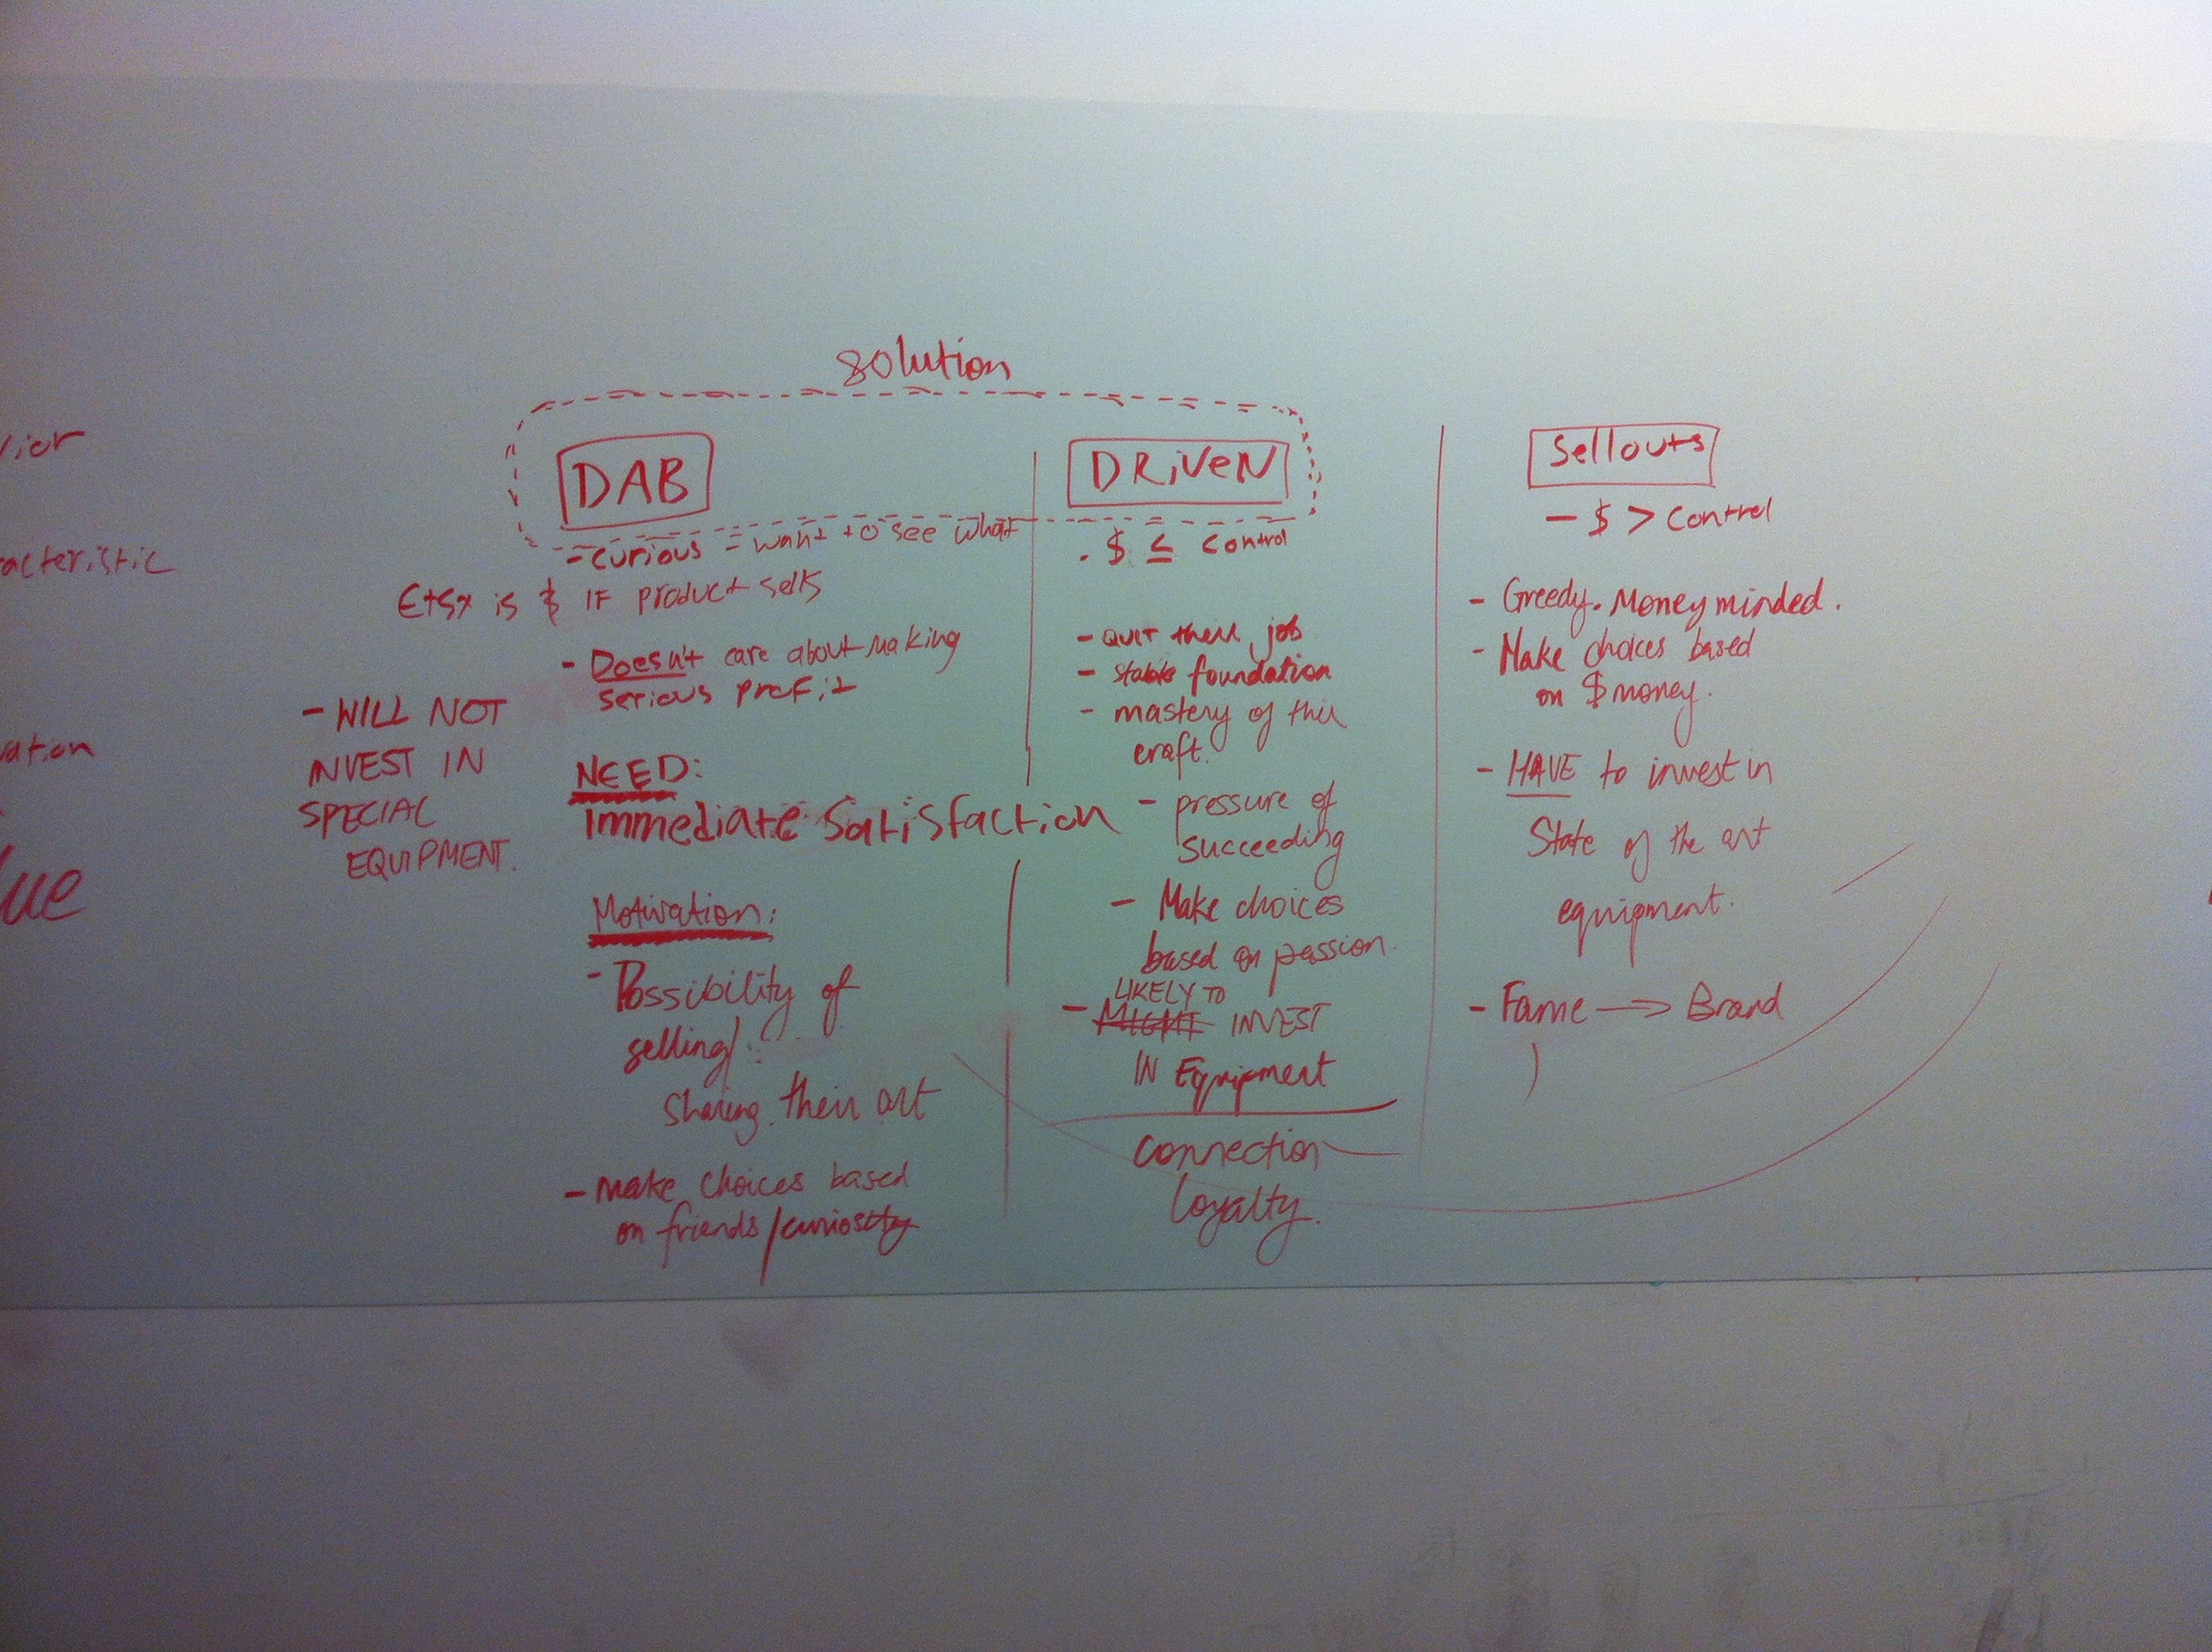 solution
DAB
-curious = want to see what
Etsy is $ IF product sells
- Doesn't care about making
serious profit
- WILL NOT
INVEST IN
SPECIAL
EQUIPMENT.
NEED:
Immediate Satisfaction
Motivation:
- Possibility of
selling/
sharing their art
- make choices based
on friends/curiosity
DRiVeN
. $ ≤ control
- QUIT their job
- stable foundation
- mastery of their
craft.
- pressure of
succeeding
- Make choices
based on passion.
LIKELY TO
- MIGHT INVEST
IN Equipment
connection
loyalty.
Sellouts
- $ > control
- Greedy. Money minded.
- Make choices based
on $ money.
- HAVE to invest in
State of the art
equipment.
- Fame → Brand
vior
acteristic
vation
lue